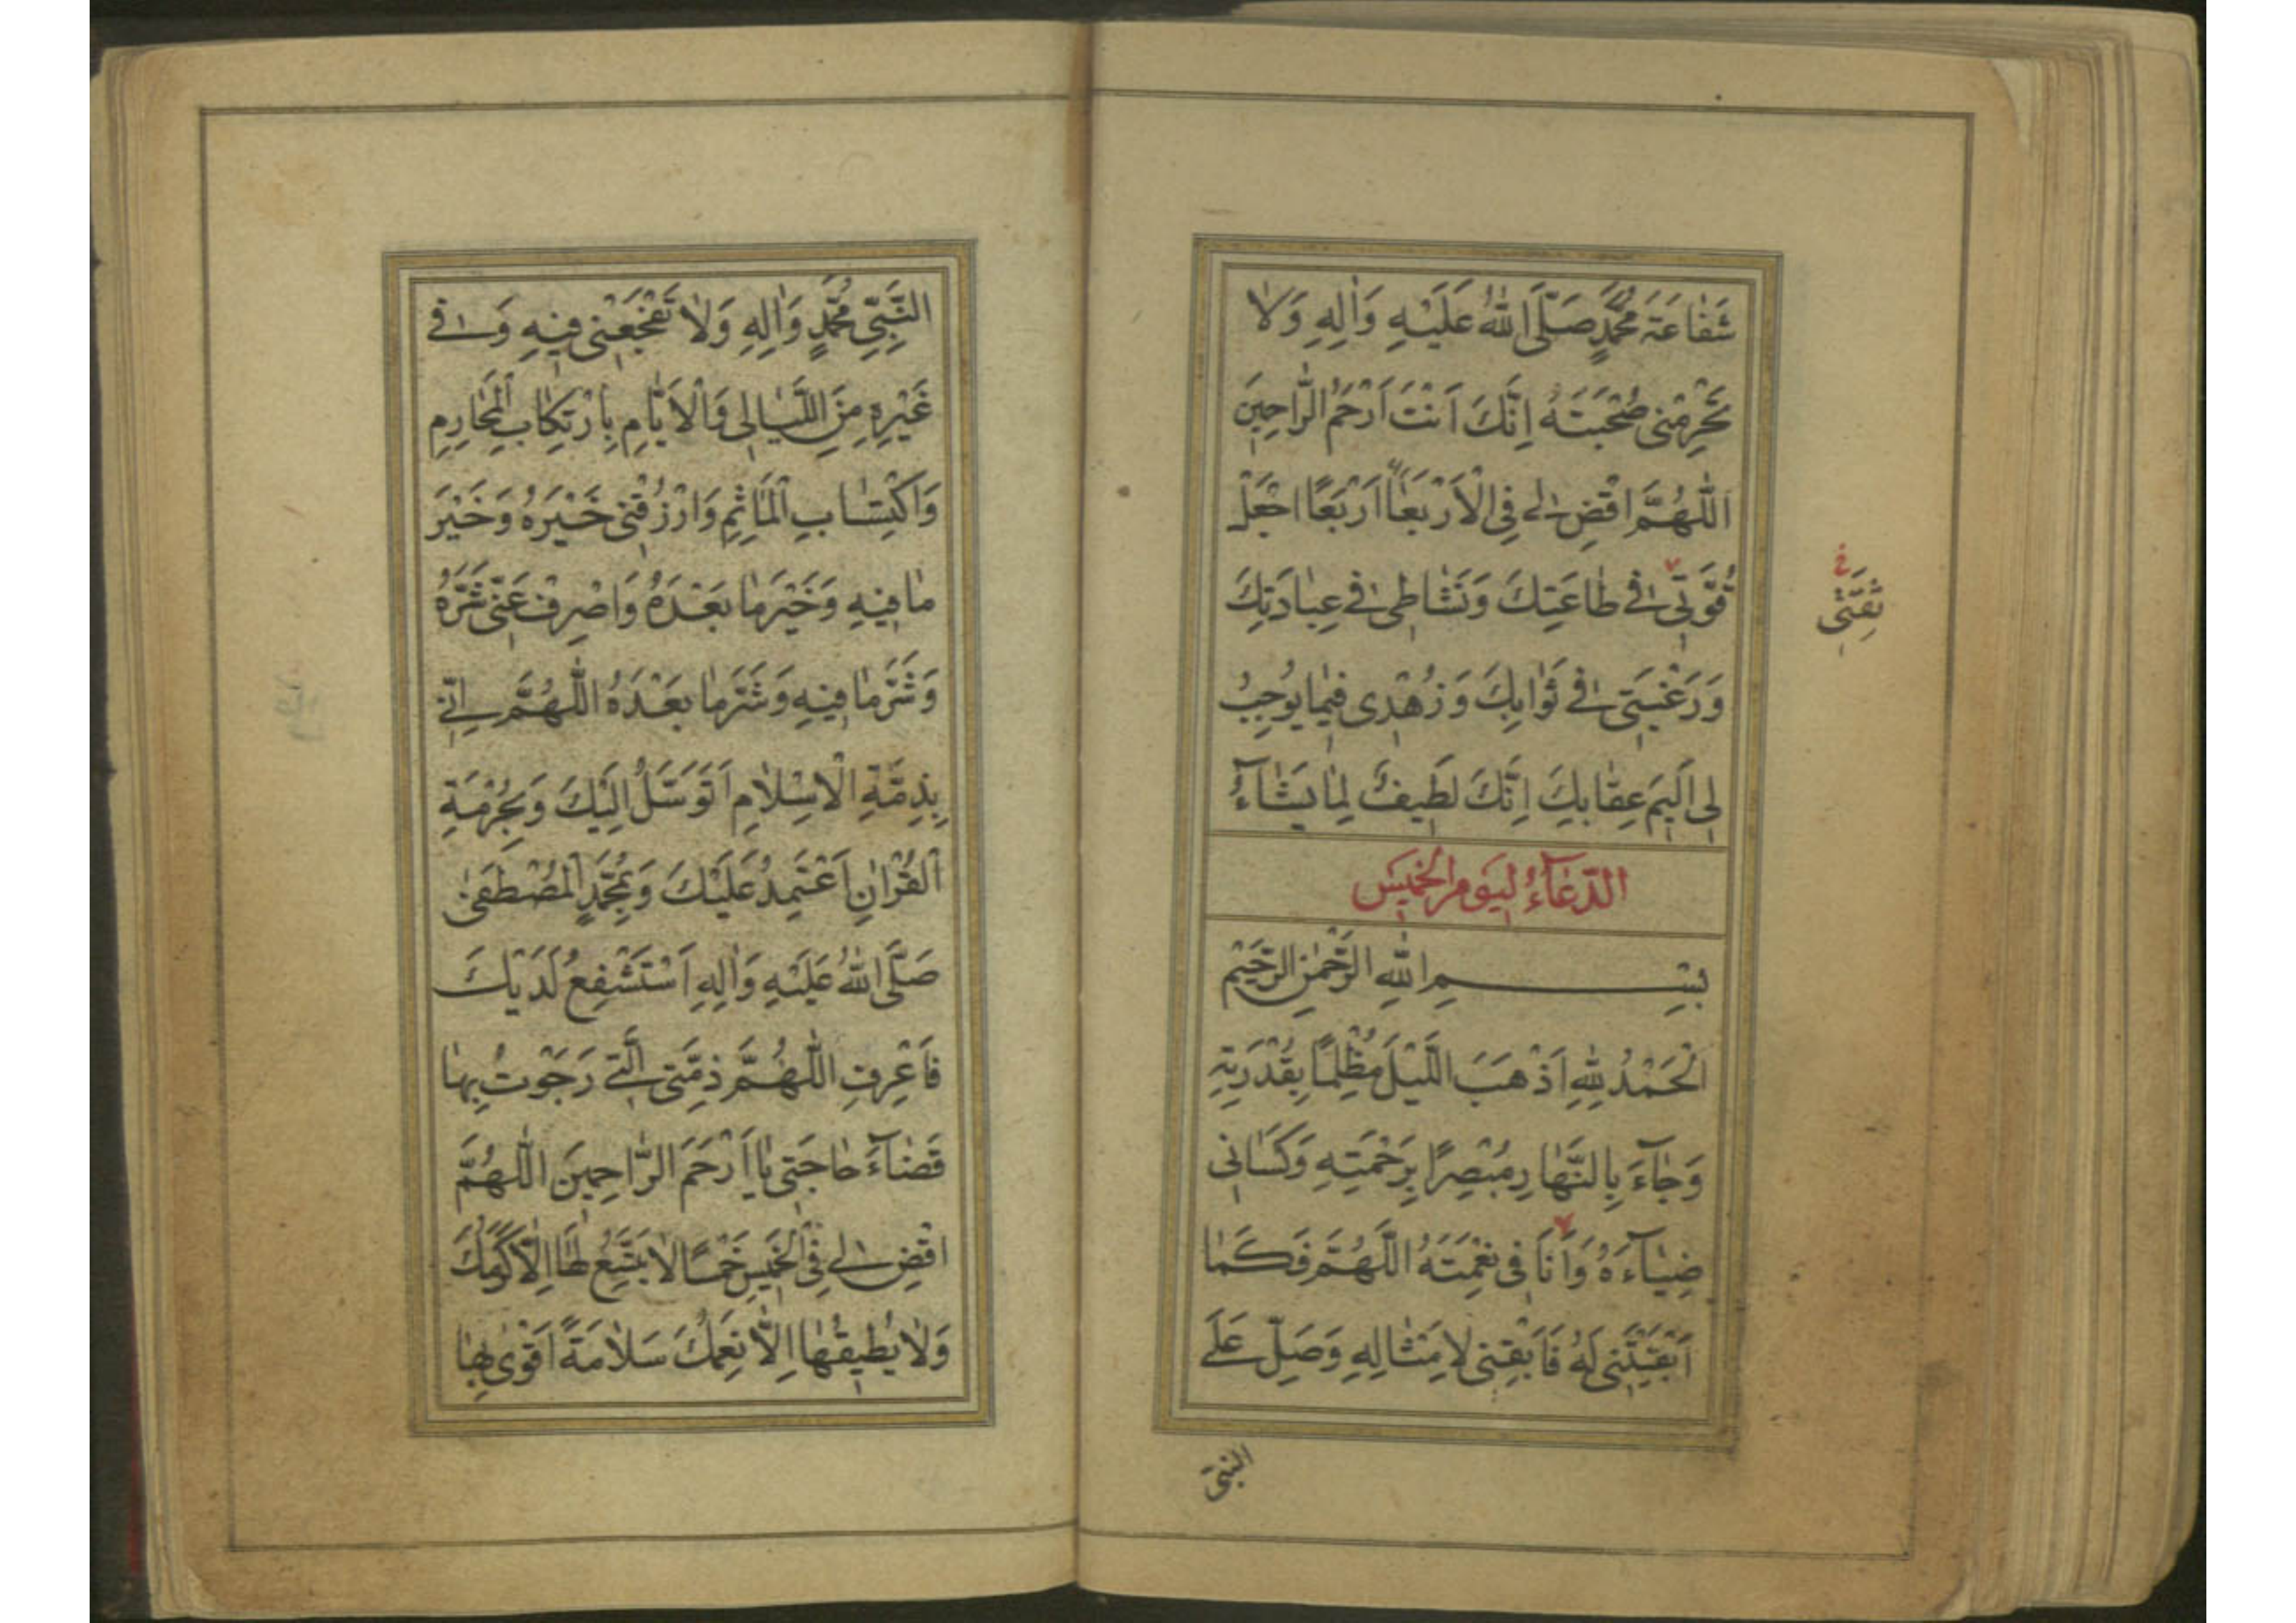 شَفٰاعَةَ مُحَمَّدٍ صَلَّى اللّٰهُ عَلَيْهِ وَاٰلِهِ وَلاٰ
تَحْرِمْنِى صُحْبَتَهُ اِنَّكَ اَنْتَ اَرْحَمُ الرّٰاحِمِينَ
اَللّٰهُمَّ اقْضِ لِى فِى الْاَرْبَعٰاءِ اَرْبَعًا اجْعَلْ
قُوَّتِى فِى طٰاعَتِكَ وَنَشٰاطِى فِى عِبٰادَتِكَ
وَرَغْبَتِى فِى ثَوٰابِكَ وَزُهْدِى فِيمٰا يُوجِبُ
لِى اَلِيمَ عِقٰابِكَ اِنَّكَ لَطِيفٌ لِمٰا يَشٰٓاءُ
الدُّعٰٓاءُ لِيَوْمِ الْخَمِيسِ
بِسْمِ اللّٰهِ الرَّحْمٰنِ الرَّحِيمِ
اَلْحَمْدُ لِلّٰهِ اَذْهَبَ اللَّيْلَ مُظْلِمًا بِقُدْرَتِهِ
وَجٰٓاءَ بِالنَّهٰارِ مُبْصِرًا بِرَحْمَتِهِ وَكَسَانِى
ضِيٰٓاءَهُ وَاَنَا فِى نِعْمَتِهِ اَللّٰهُمَّ فَكَمٰا
اَبْقَيْتَنِى لَهُ فَاَبْقِنِى لِاَمْثٰالِهِ وَصَلِّ عَلَى
النَّبِىِّ
النَّبِىِّ مُحَمَّدٍ وَاٰلِهِ وَلاٰ تَفْجَعْنِى فِيهِ وَفِى
غَيْرِهِ مِنَ اللَّيٰالِى وَالْاَيّٰامِ بِارْتِكٰابِ الْمَحٰارِمِ
وَاكْتِسٰابِ الْمَاٰثِمِ وَارْزُقْنِى خَيْرَهُ وَخَيْرَ
مٰا فِيهِ وَخَيْرَ مٰا بَعْدَهُ وَاصْرِفْ عَنِّى شَرَّهُ
وَشَرَّ مٰا فِيهِ وَشَرَّ مٰا بَعْدَهُ اَللّٰهُمَّ اِنِّى
بِذِمَّةِ الْاِسْلاٰمِ اَتَوَسَّلُ اِلَيْكَ وَبِحُرْمَةِ
الْقُرْاٰنِ اَعْتَمِدُ عَلَيْكَ وَبِمُحَمَّدٍ الْمُصْطَفٰى
صَلَّى اللّٰهُ عَلَيْهِ وَاٰلِهِ اَسْتَشْفِعُ لَدَيْكَ
فَاعْرِفِ اللّٰهُمَّ ذِمَّتِى الَّتِى رَجَوْتُ بِهٰا
قَضٰٓاءَ حٰاجَتِى يٰا اَرْحَمَ الرّٰاحِمِينَ اَللّٰهُمَّ
اقْضِ لِى فِى الْخَمِيسِ خَمْسًا لاٰ يَتَّسِعُ لَهٰا اِلّٰا كَرَمُكَ
وَلاٰ يُطِيقُهٰا اِلّٰا نِعَمُكَ سَلاٰمَةً اَقْوٰى بِهٰا